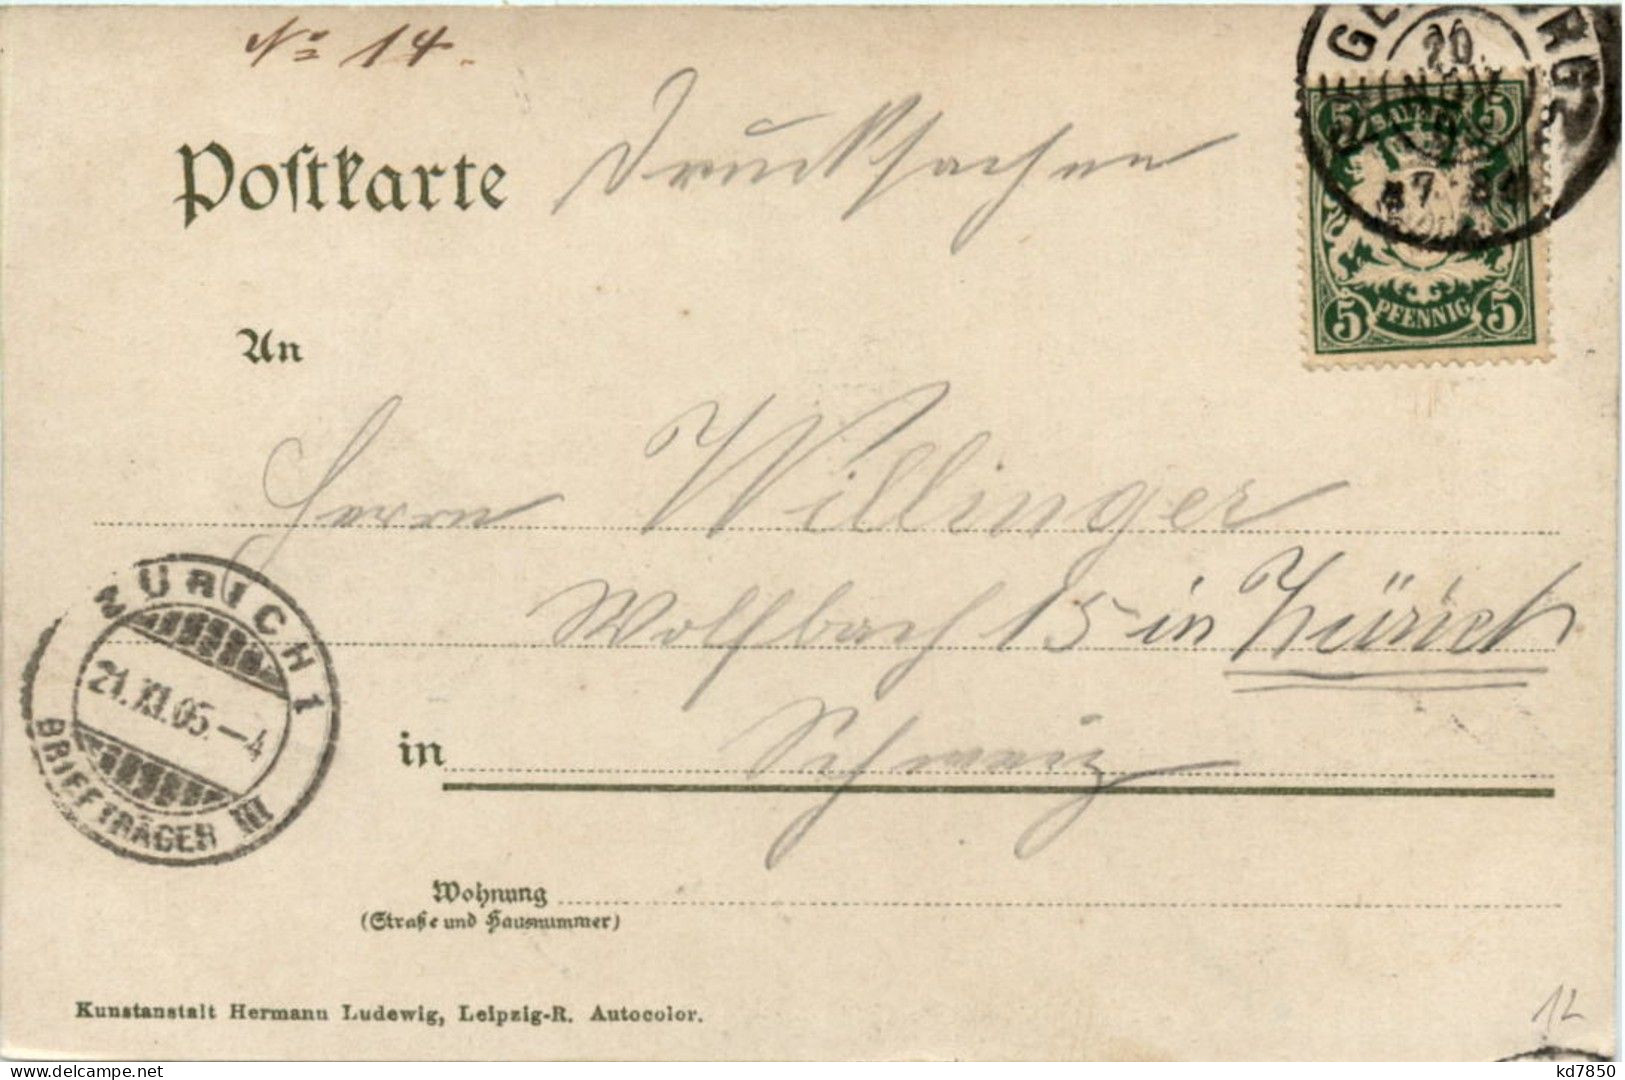 No 14.
Postkarte
Drucksachen
20
NOV
7
5 5
PFENNIG
5 5
An
Herrn Willinger
Wolfbach 15 in Zürich
in Schweiz
ZÜRICH 1
21.XI.05.-4
BRIEFTRÄGER III
Wohnung
(Straße und Hausnummer)
Kunstanstalt Hermann Ludewig, Leipzig-R. Autocolor.
12
kd7850